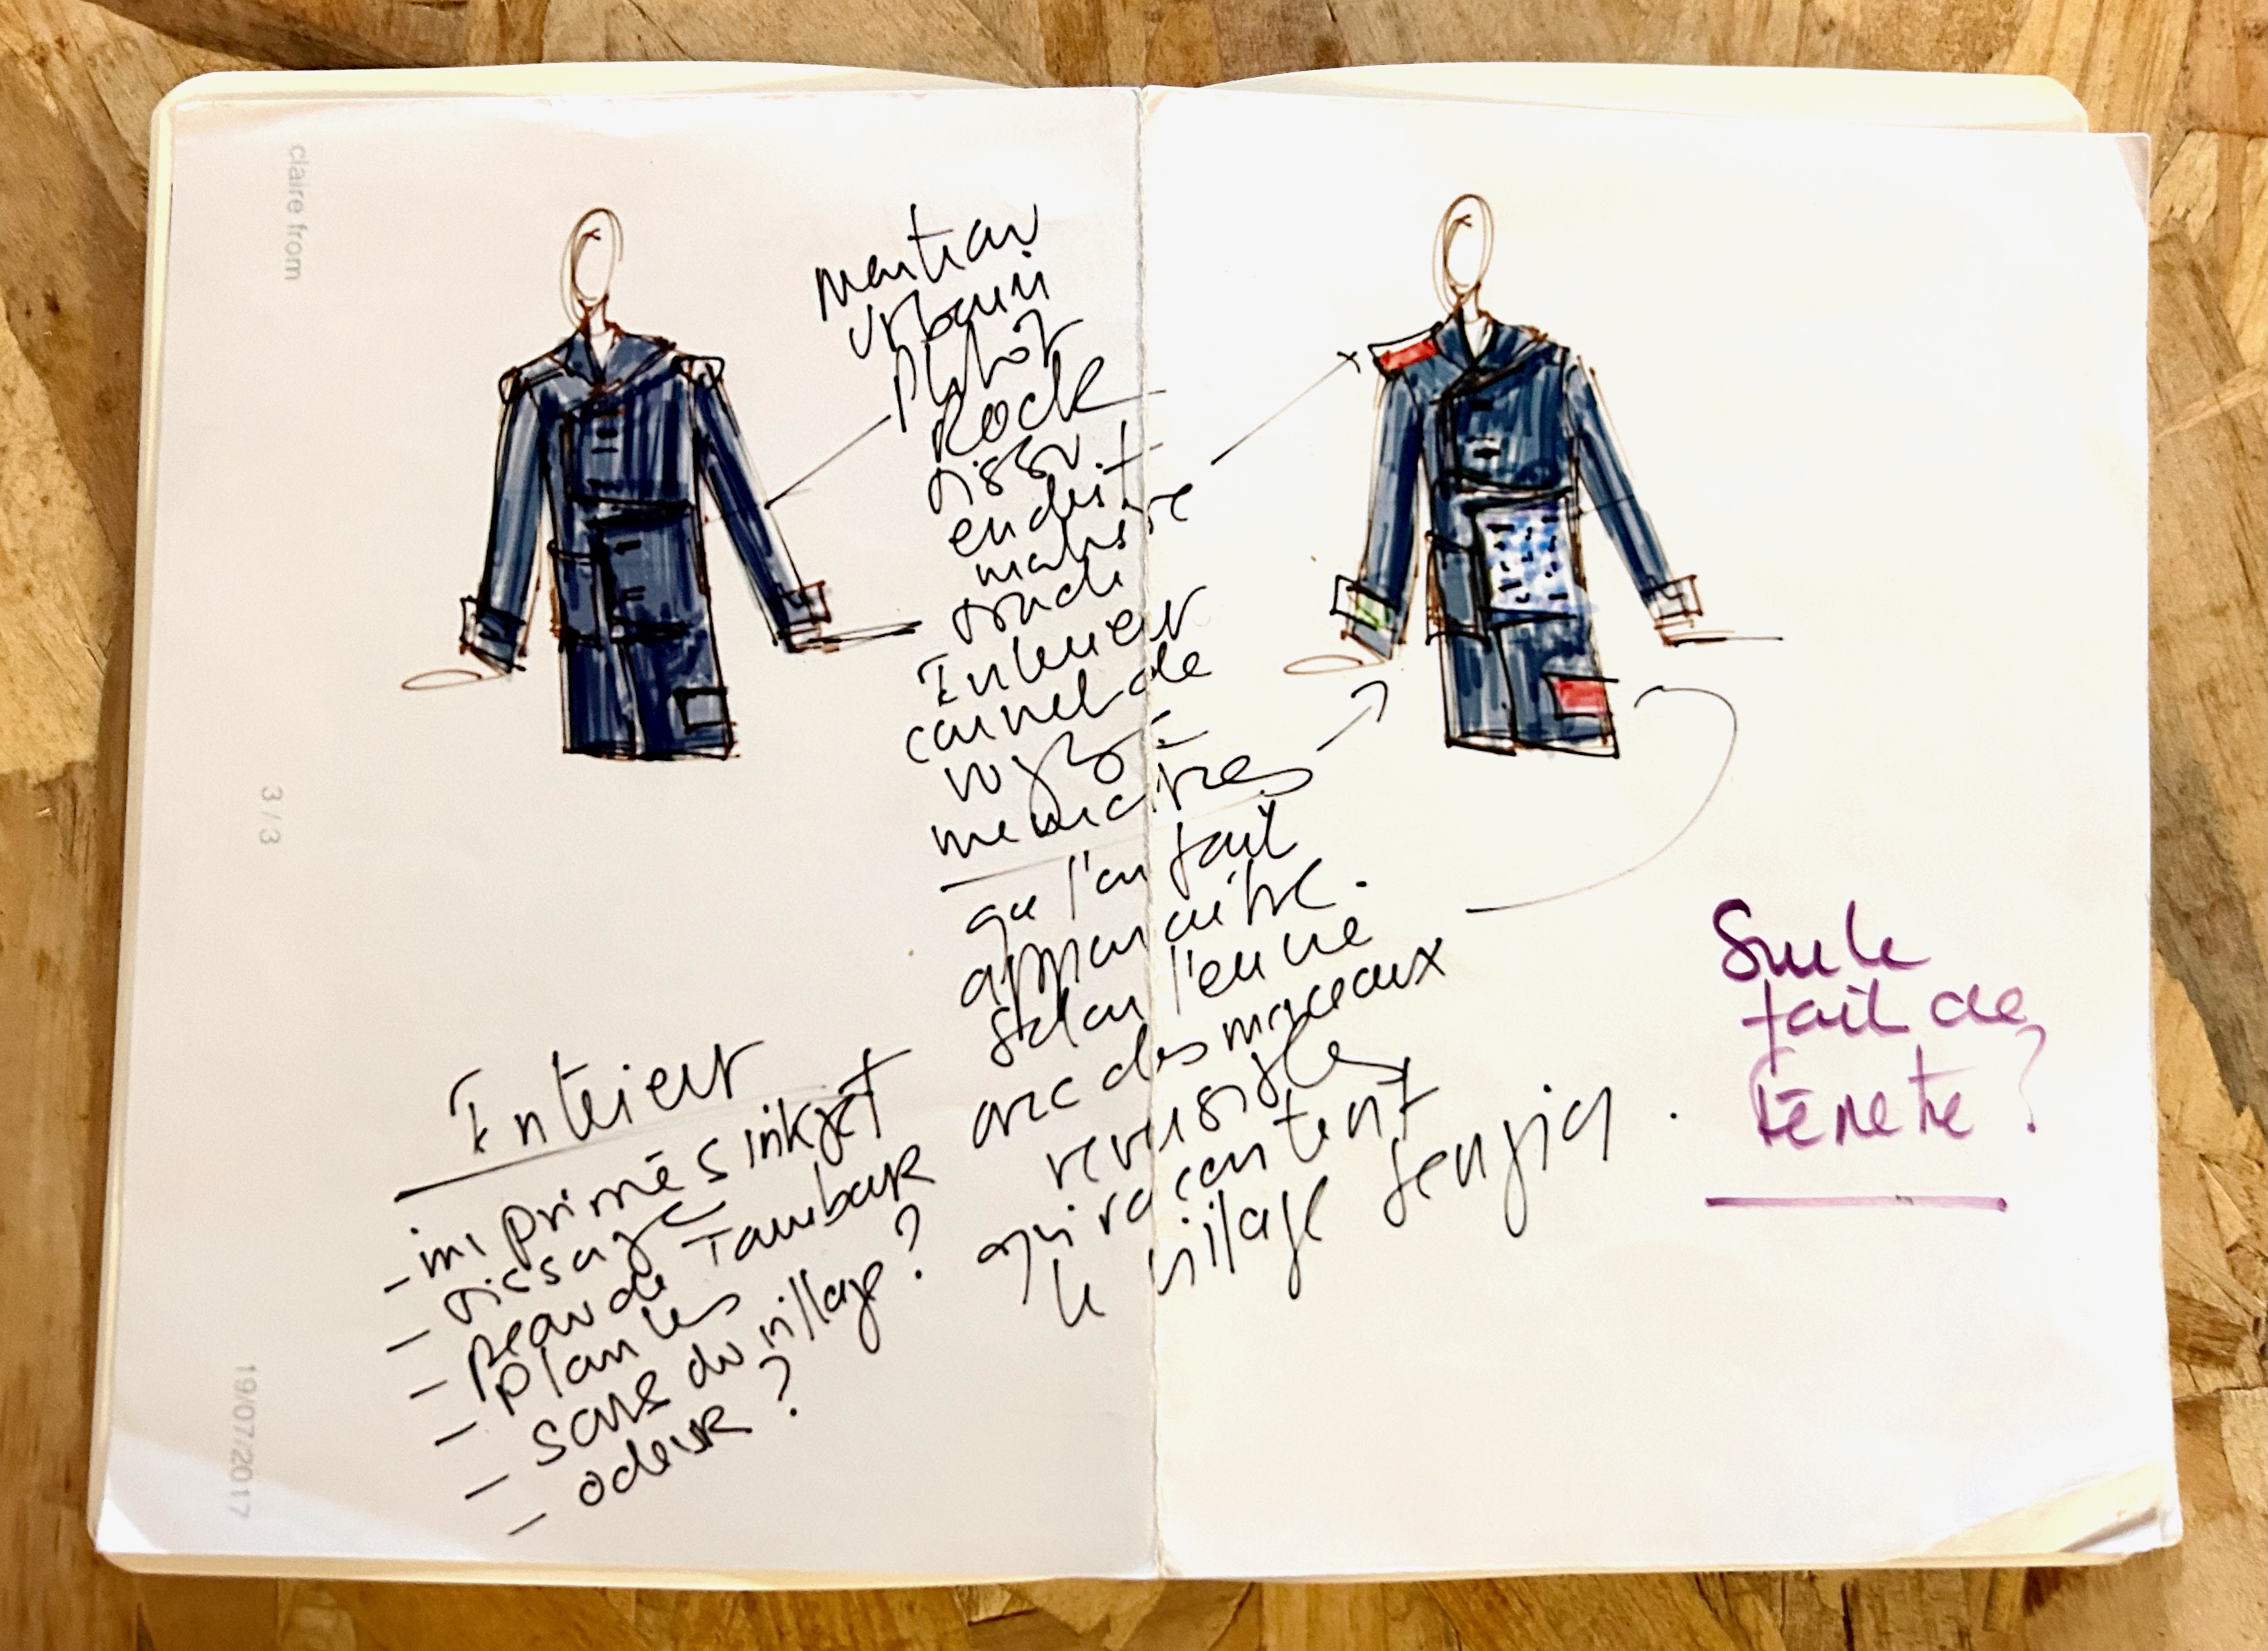 claire from
3 / 3
19/07/2017
manteau
urbain
plutôt
Rock
tissu
enduit
matière
Intérieur
carnet de
mémoires
que l'on fait
apparaître.
selon l'envie
avec des morceaux
réversibles
qui racontent
le village
Intérieur
- imprimés inkjet
- tissage
- peau de Tambour
- plantes
- sons du village ?
- odeur ?
Sur le
fait de